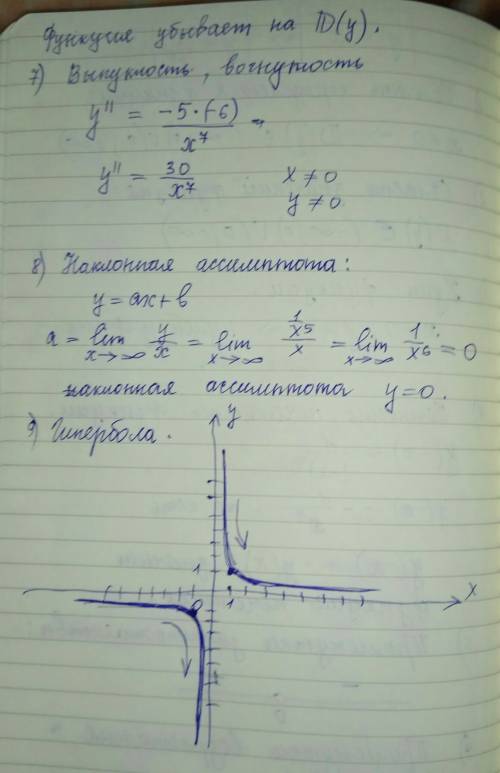 Функция убывает на D(y).
7) Выпуклость, вогнутость
y'' = -5·(-6) / x^7
y'' = 30 / x^7 x ≠ 0
y ≠ 0
8) Наклонная ассимптота:
y = ax + b
a = lim x→∞ y/x = lim x→∞ (1/x^5)/x = lim x→∞ 1/x^6 = 0
наклонная ассимптота y=0.
9) Гипербола.
y
1
x
0 1